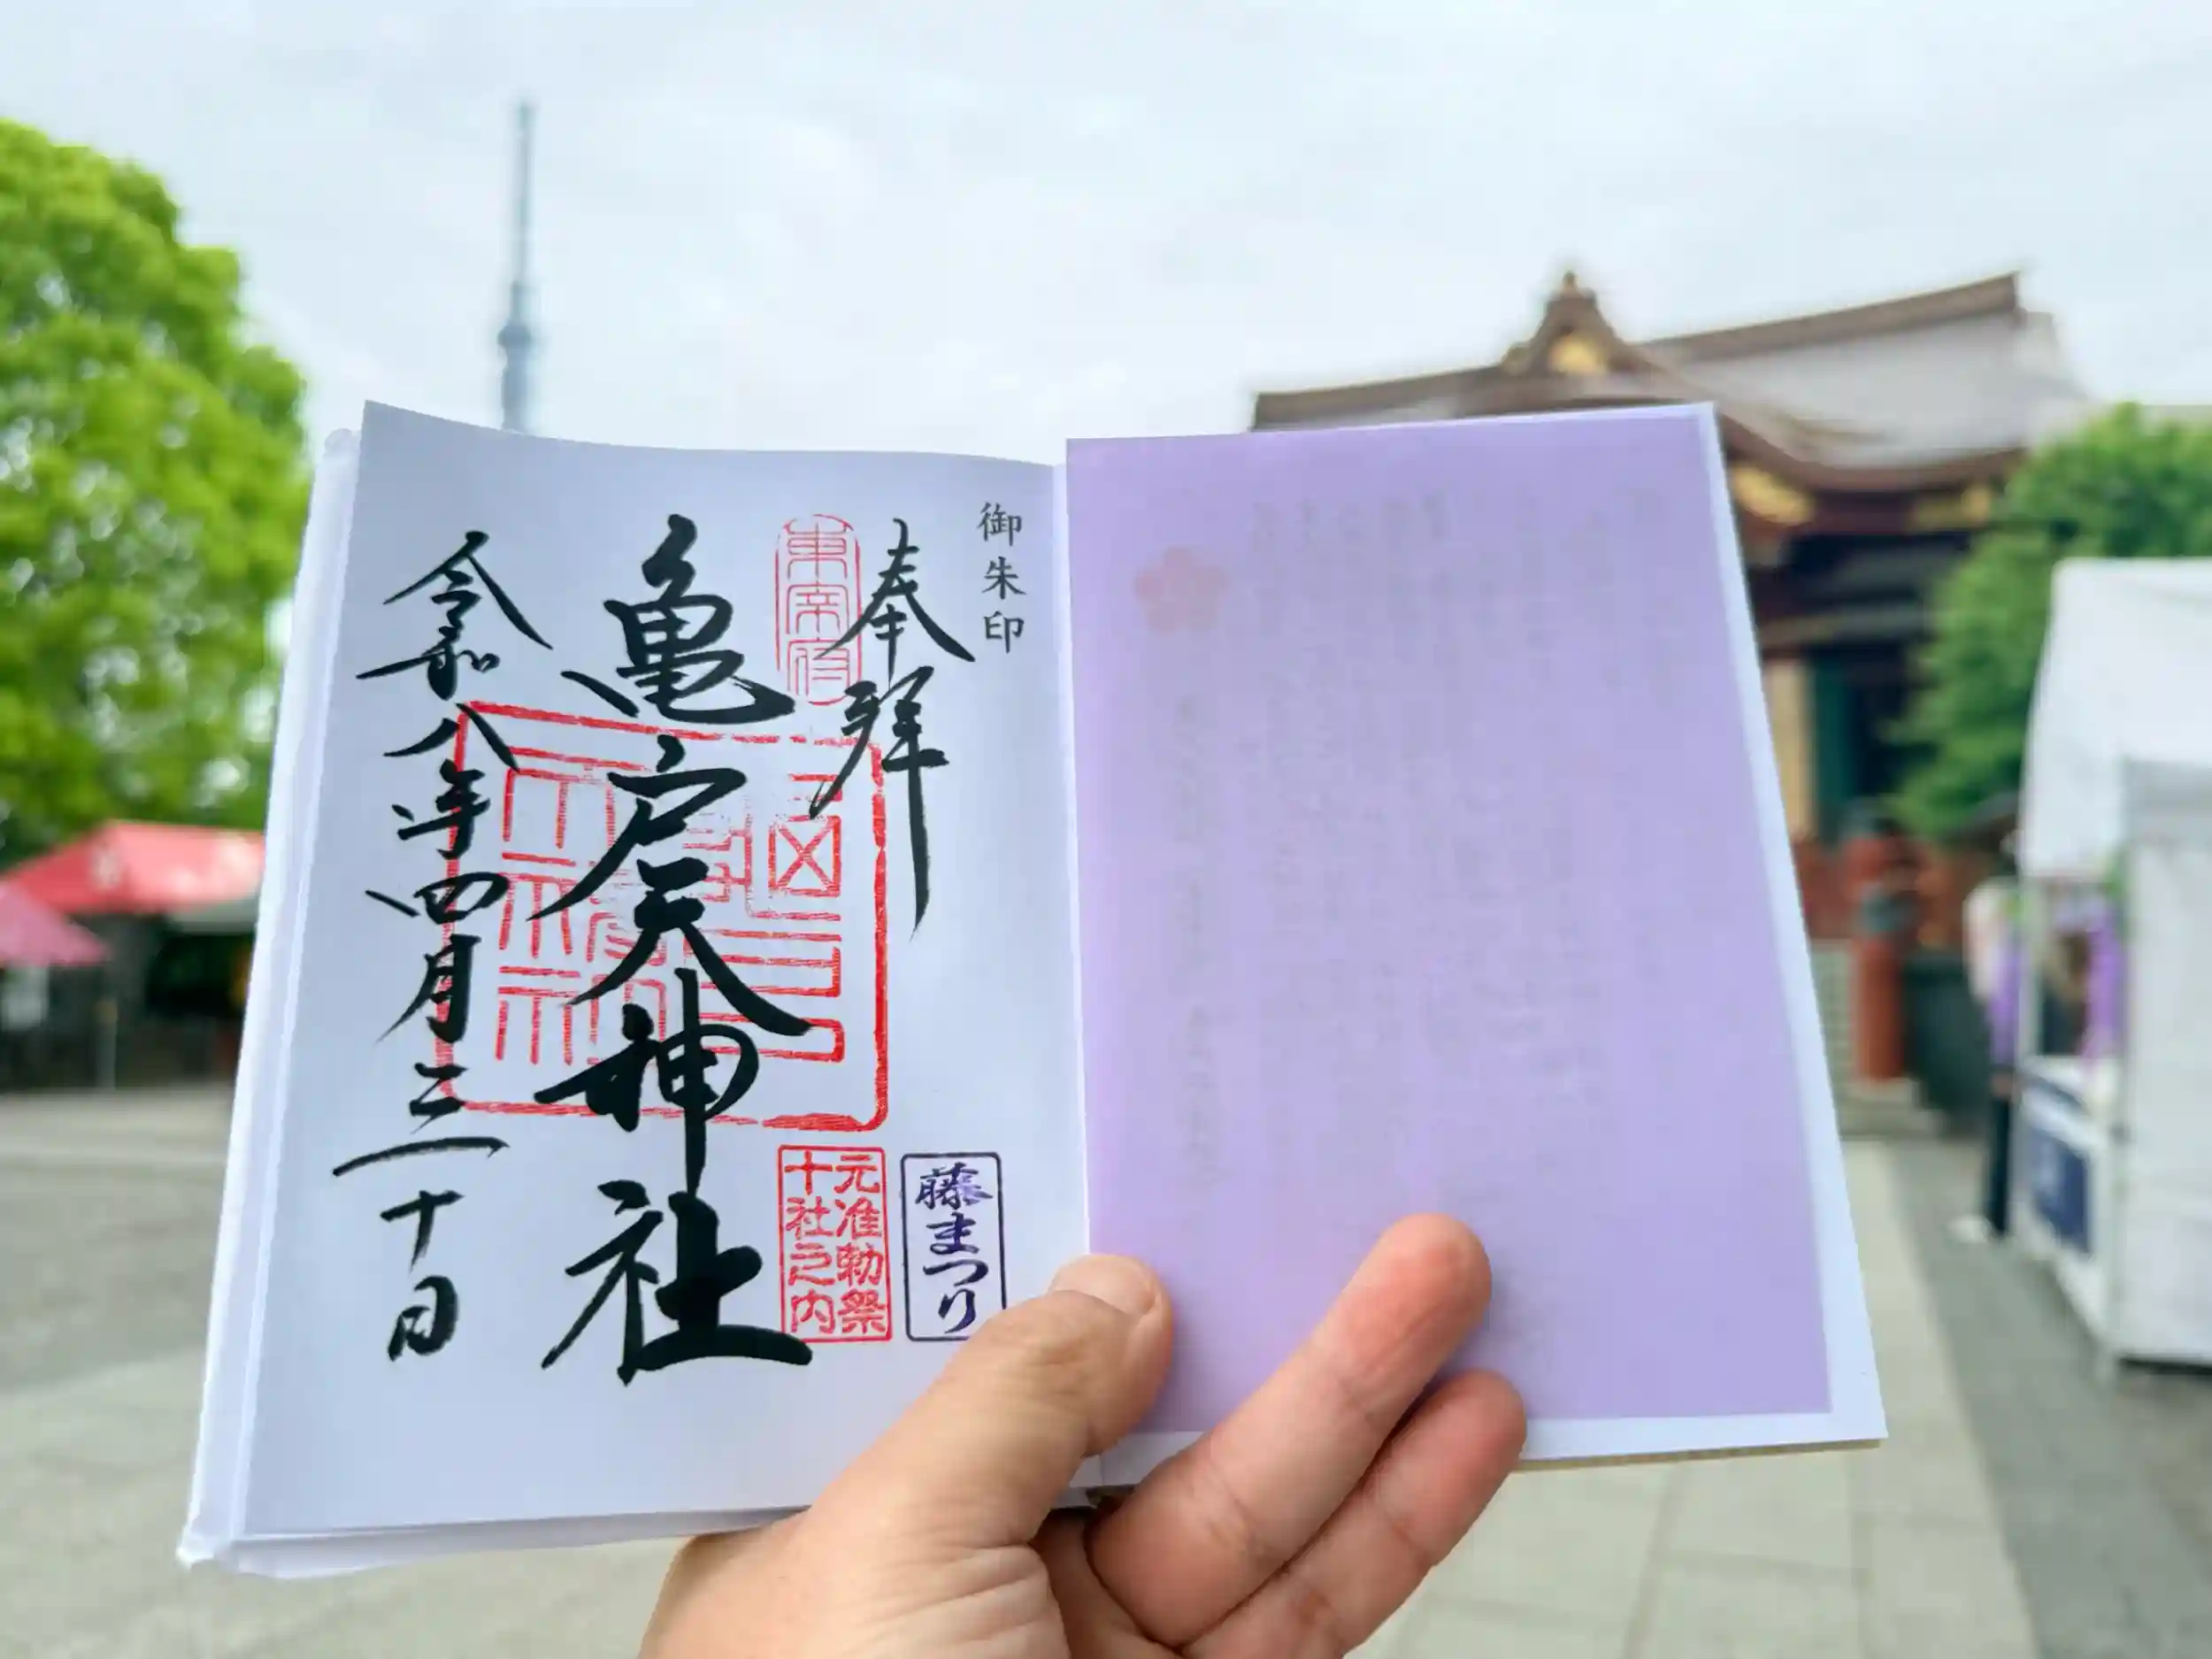 御朱印
奉拝
東宰府
亀戸天神社
元准勅祭
十社之内
藤まつり
令和八年四月三十日